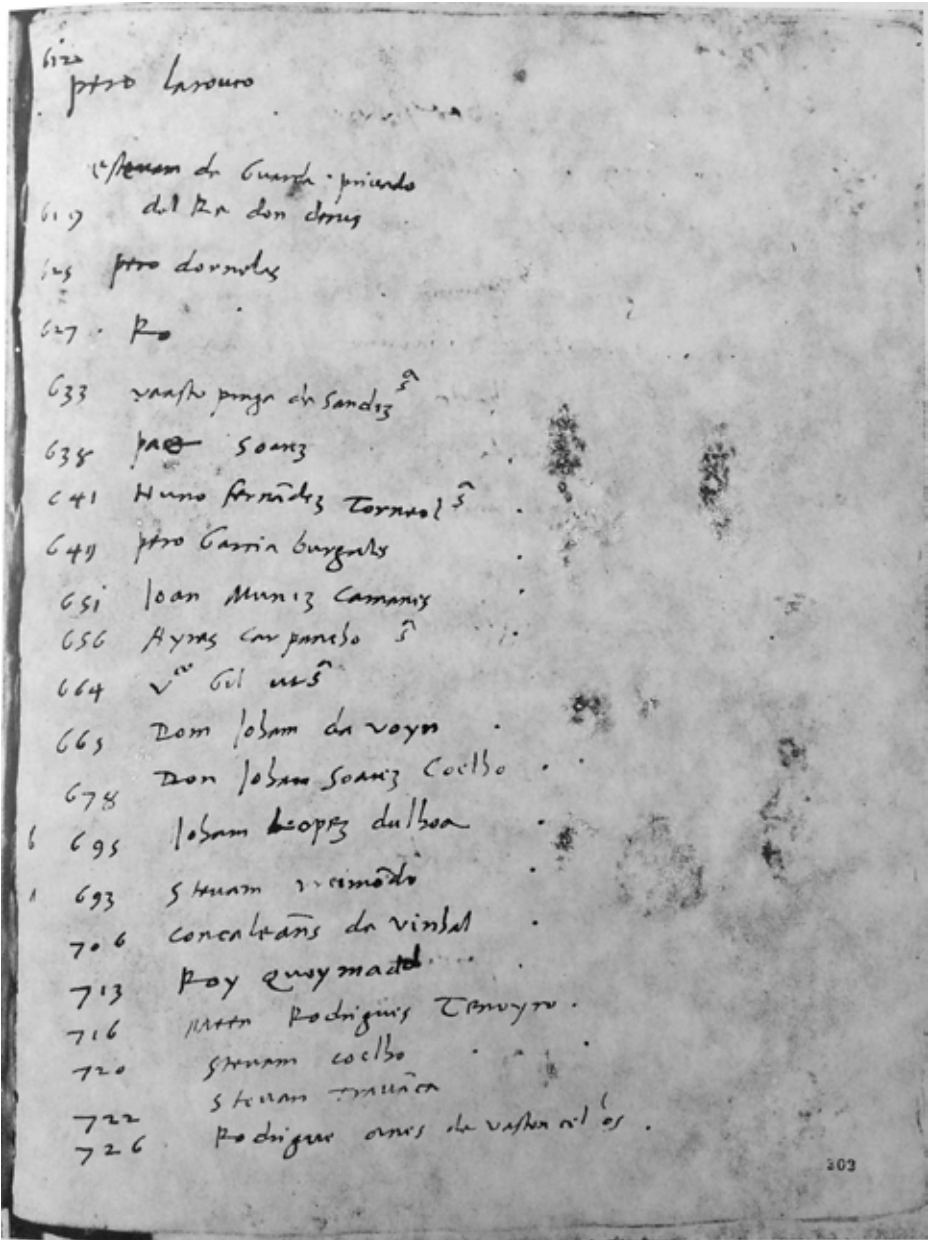 612
pero larouco
estevam da Guarda · privado
619 del Re don denis
625 pero dornelas
627 · Ro
633 vaasco praga de Sandiz
638 paeo Soarez
641 Nuno fernãdez Torneol ŝ
649 pero Garcia burgales
651 Joan Muniz Camanes
656 Ayras Carpancho ŝ
664 Vco Gil
665 Dom Joham da voyn ·
678 Don Johan Soarez Coelho ·
6 695 Joham Lopez dulhoa ·
693 Stevam reimõdo ·
706 Concaleãns da vinhal ·
713 Roy Queymado
716 Meen Rodrigues Tenoyro ·
720 Stevam coelho ·
722 Stevam Travãca
726 Rodrigue anes de vasconcelos ·
303